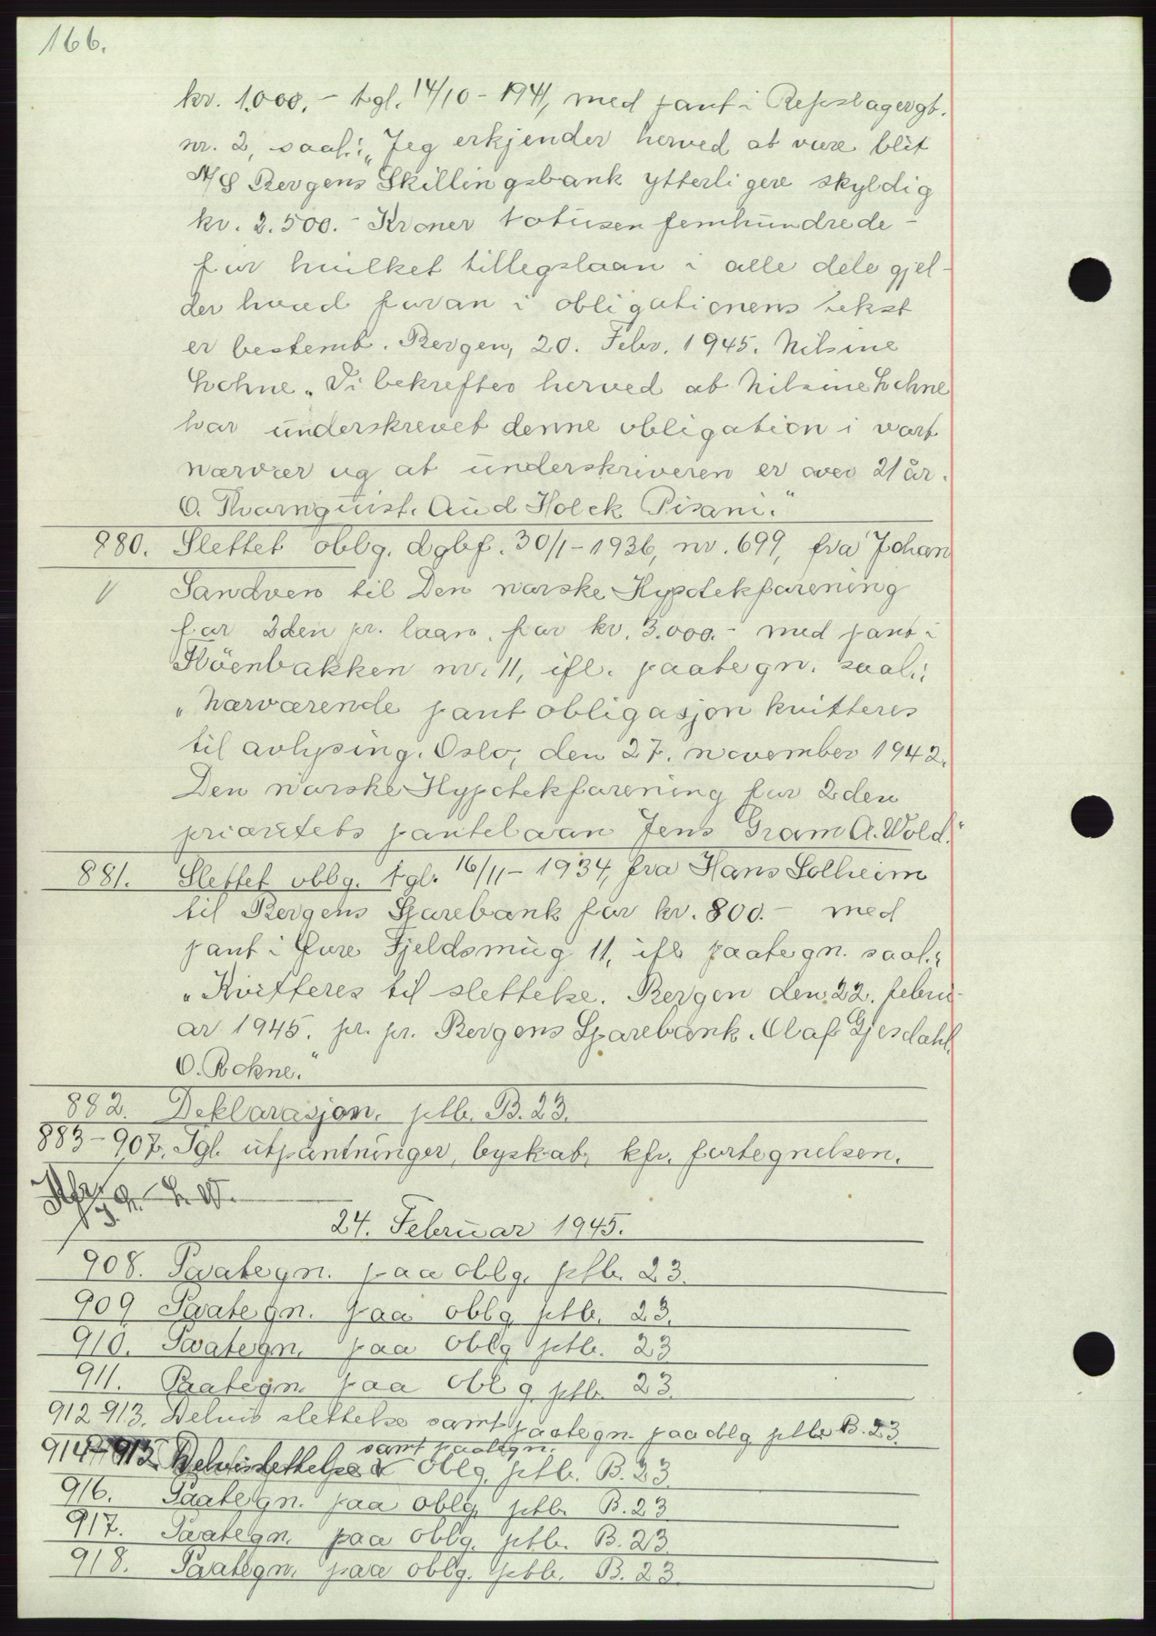 166.
kr. 1.000.- tgl. 14/10-1941, med pant i Repslagergt.
nr. 2, saal.: „Jeg erkjender herved at være blit
A/S Bergens Skillingsbank ytterligere skyldig
kr. 2.500.- Kroner totusen femhundrede -
for hvilket tillegslaan i alle dele gjel-
der hvad foran i obligationens tekst
er bestemt. Bergen, 20. Febr. 1945. Nilsine
Lohne. „Vi bekrefter herved at Nilsine Lohne
har underskrevet denne obligation i vort
nærvær og at underskriveren er over 21 år.
O. Kvarnquist. Aud Holck Pisani."
880. Slettet oblg. dgbf. 30/1-1936, nr. 699, fra Johan
V Sandven til Den norske Hypotekforening
for 2den pr. laan. for kr. 3.000.- med pant i
Røenbakken nr. 11, ifl. paategn. saal.:
„Nærværende pantobligasjon kvitteres
til avlysing. Oslo, den 27. november 1942.
Den norske Hypotekforening for 2den
prioritets pantelaan Jens Gram A. Wold."
881. Slettet oblg. tgl. 16/11-1934, fra Hans Solheim
til Bergens Sparebank for kr. 800.- med
pant i Øvre Fjeldsmug 11, ifl paategn. saal.:
„Kvitteres til slettelse. Bergen den 22. febru-
ar 1945. pr. pr. Bergens Sparebank. Olaf Gjesdahl.
O. Rokne."
882. Deklarasjon. ptb. B. 23.
883-907. Tgl. utpantninger, byskat, kfr. fortegnelsen.
Kfr.
24. Februar 1945.
908. Paategn. paa oblg. ptb. 23.
909 Paategn. paa oblg ptb. 23.
910. Paategn. paa oblg ptb. 23
911. Paategn. paa oblg. ptb. 23.
912 913. Delvis slettelse samt paategn. paa oblg ptb. B. 23.
samt paategn.
914-915. Delvis slettelse v oblg. ptb. B. 23
916. Paategn. paa oblg. ptb. B. 23
917. Paategn. paa oblg. ptb. B. 23.
918. Paategn. paa oblg. ptb. B. 23.